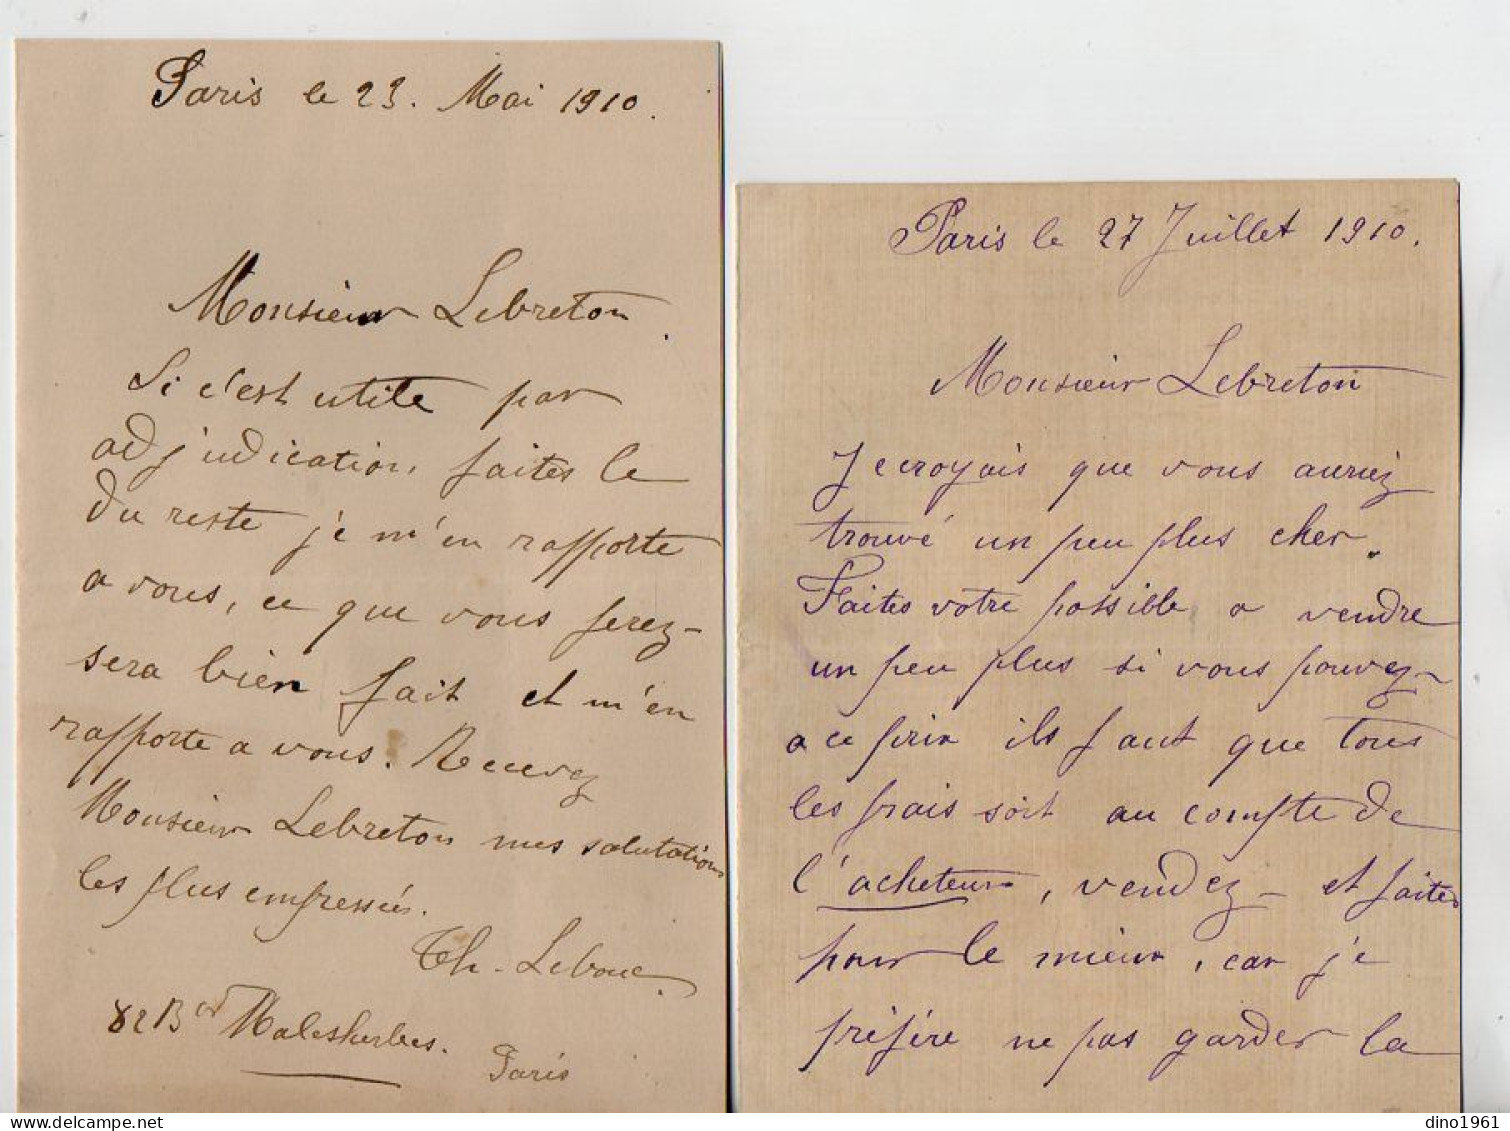 Paris le 23. Mai 1910.
Monsieur Lebreton.
Si c'est utile par
adjudication, faites le
du reste je m'en rapporte
a vous, ce que vous ferez
sera bien fait et m'en
rapporte a vous. Recevez
Monsieur Lebreton mes salutations
les plus empressées.
Th. Lebouc.
82 Bd Malesherbes.
Paris
Paris le 27 Juillet 1910.
Monsieur Lebreton
Je croyais que vous auriez
trouvé un peu plus cher.
Faites votre possible a vendre
un peu plus si vous pouvez
a ce prix ils faut que tous
les frais soit au compte de
l'acheteur, vendez et faites
pour le mieux, car je
préfère ne pas garder la
dino1961